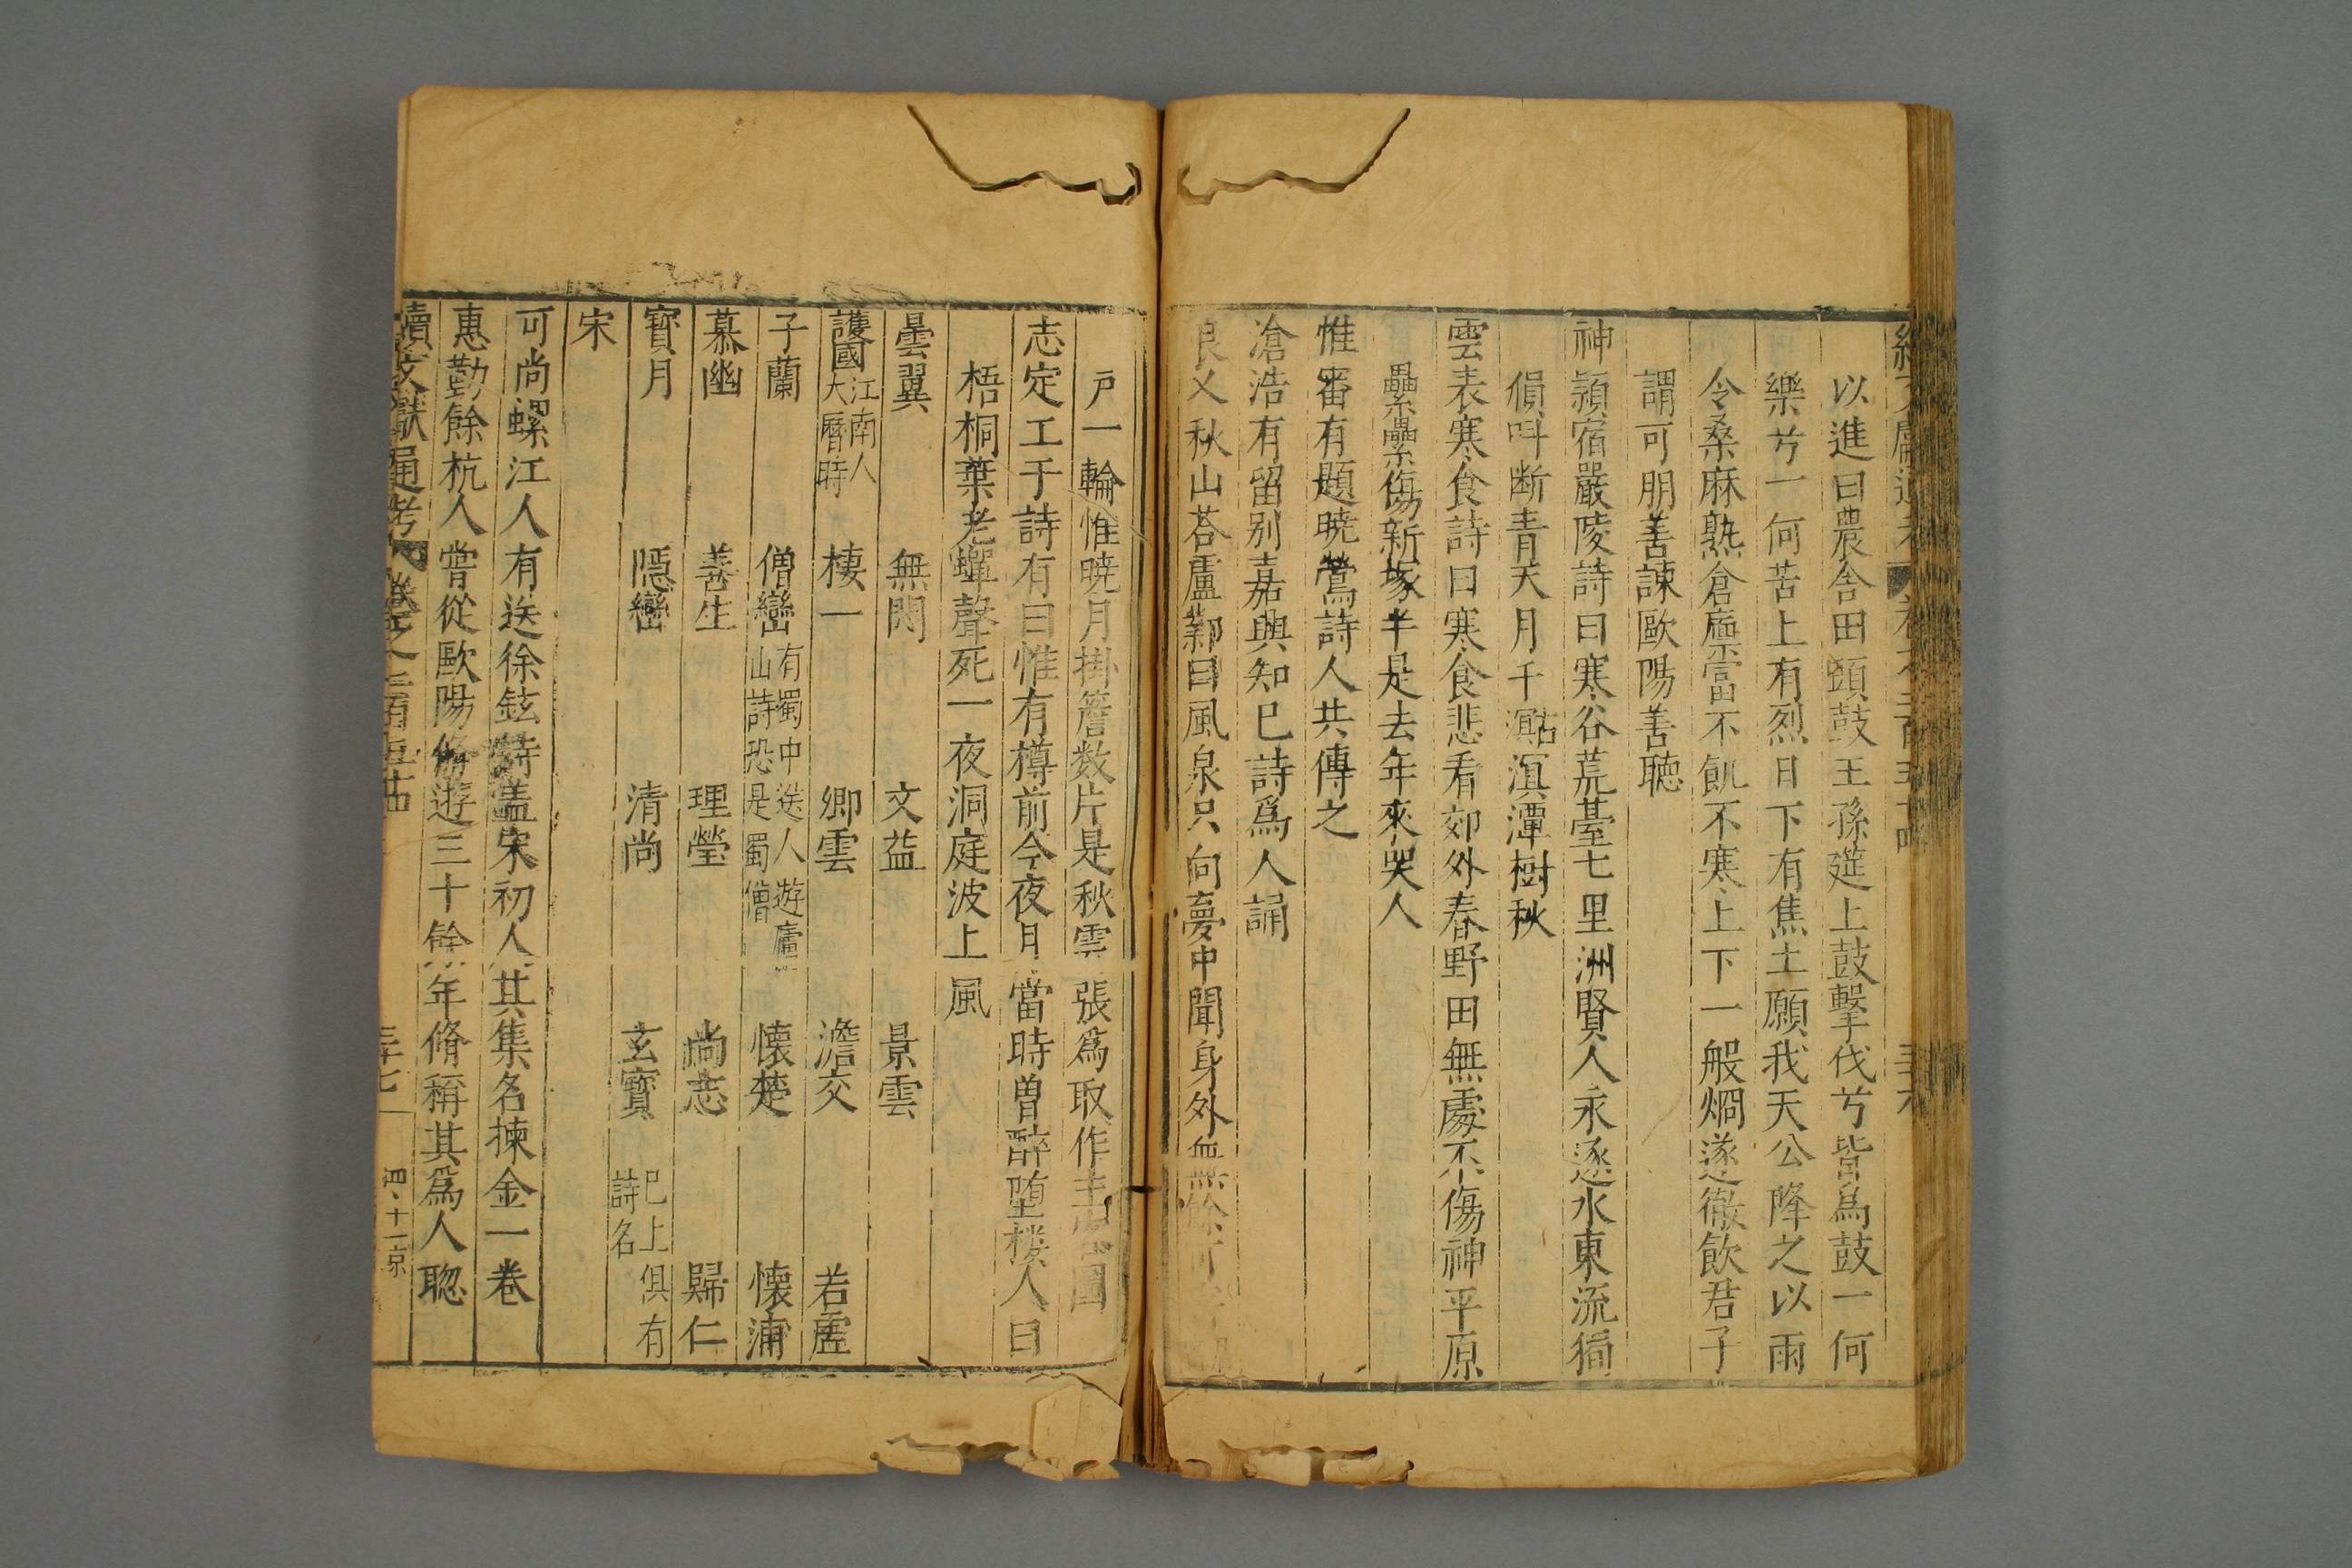 以進曰農舍田頭鼓王孫筵上鼓擊伐兮皆爲鼓一何
樂兮一何苦上有烈日下有焦土願我天公降之以雨
令桑麻熟倉廩富不飢不寒上下一般烱遂徹飲君子
謂可朋善諫歐陽善聽
神穎宿嚴陵詩曰寒谷荒臺七里洲賢人永逐水東流猶
傊呌断青天月千㴿滇潭樹秋
雲表寒食詩曰寒食悲看郊外春野田無處不傷神平原
纍纍傷新塚半是去年來哭人
惟審有題曉鶯詩人共傳之
滄浩有留别嘉興知己詩爲人誦
良乂秋山荅盧鄴曰風泉只向夢中聞身外無餘可
戸一輪惟曉月掛簷数片是秋雲張爲取作主客圖
志定工于詩有曰惟有樽前今夜月當時曽醉堕樓人曰
梧桐葉老蟬聲死一夜洞庭波上風
曇翼 無悶 文益 景雲
護國江南人大曆時 棲一 卿雲 澹交 若虛
子蘭 僧鸞有蜀中送人遊廬山詩恐是蜀僧 懷楚 懷浦
慕幽 善生 理瑩 尚志 歸仁
寳月 隱巒 清尚 玄寳 已上俱有詩名
宋
可尚螺江人有送徐鉉詩盖宋初人其集名揀金一卷
惠勤餘杭人嘗從歐陽脩遊三十餘年脩稱其爲人聰
續文獻通考 卷之二百五十四 三十七 四·十一京